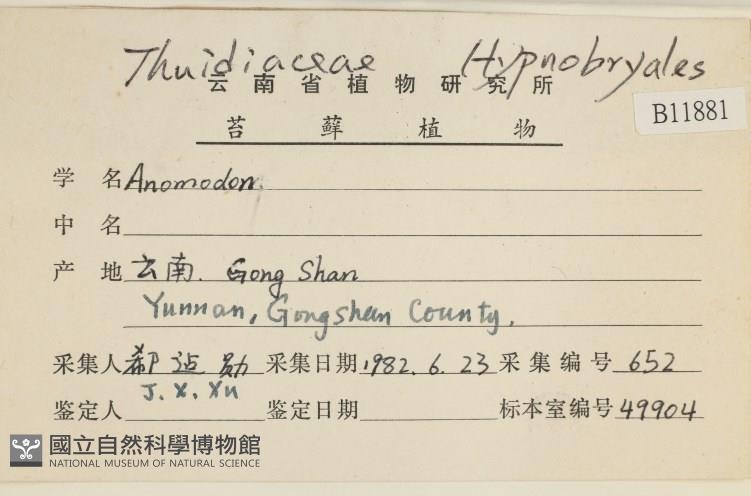 Thuidiaceae Hypnobryales
云南省植物研究所
B11881
苔藓植物
学名 Anomodon
中名
产地 云南. Gong Shan
Yunnan, Gongshan County.
采集人 采集日期 1982.6.23 采集编号 652
J. X. Xu
鉴定人 鉴定日期 标本室编号 49904
國立自然科學博物館
NATIONAL MUSEUM OF NATURAL SCIENCE